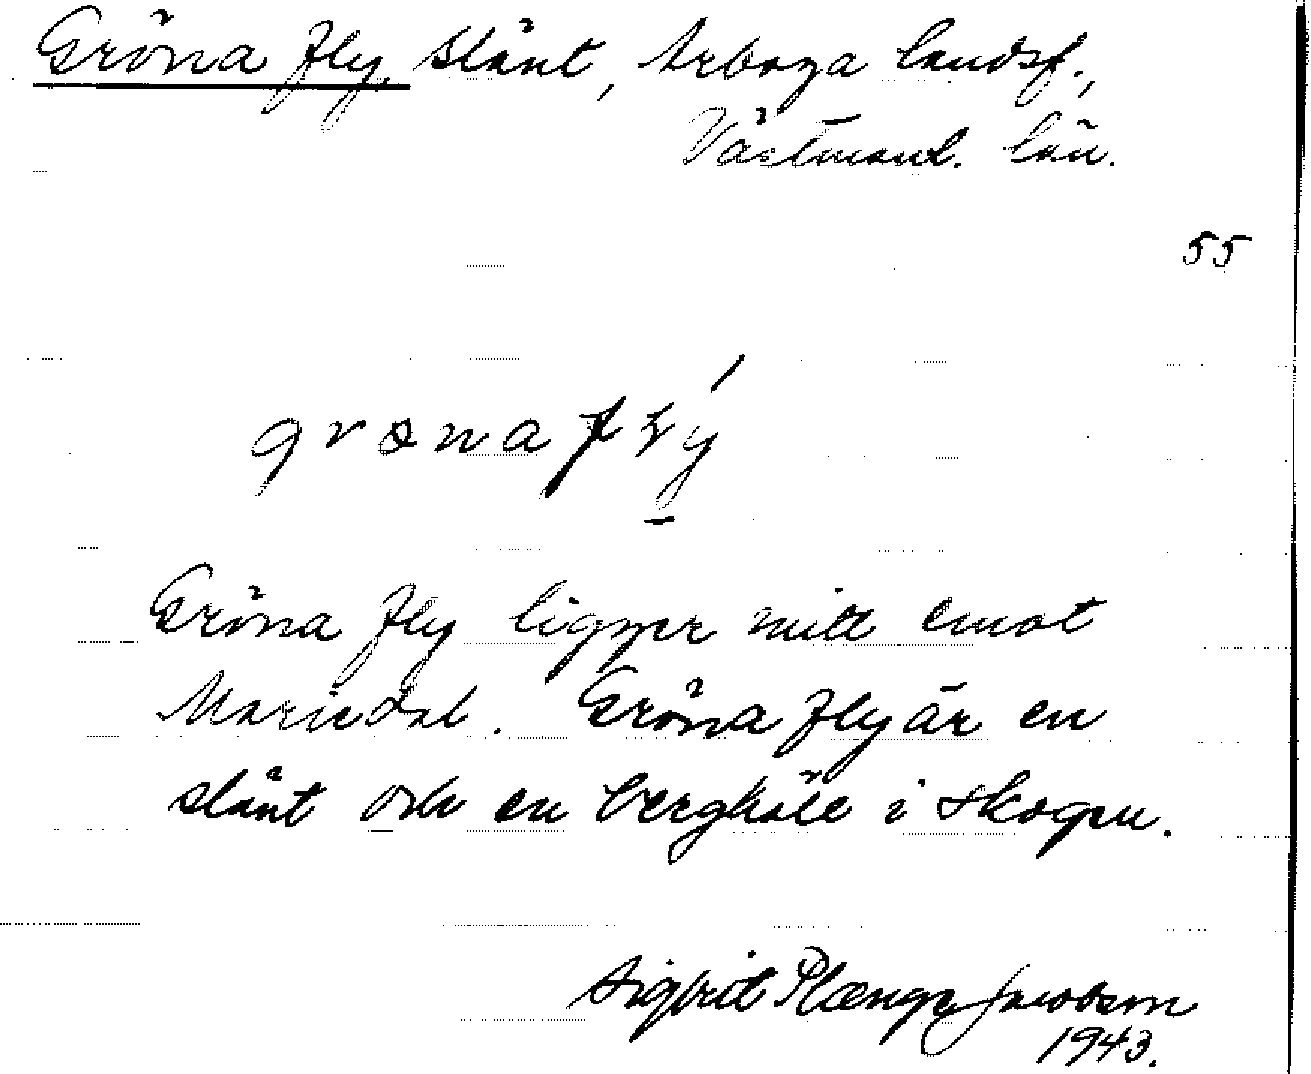 Gröna fly, slänt, Arboga landsf.,
Västmanl. län.
55
grønaflý
Gröna fly ligger mitt emot
Mariedal. Gröna fly är en
slänt och en berghäll i skogen.
Sigfrid Plænge Jacobson
1943.